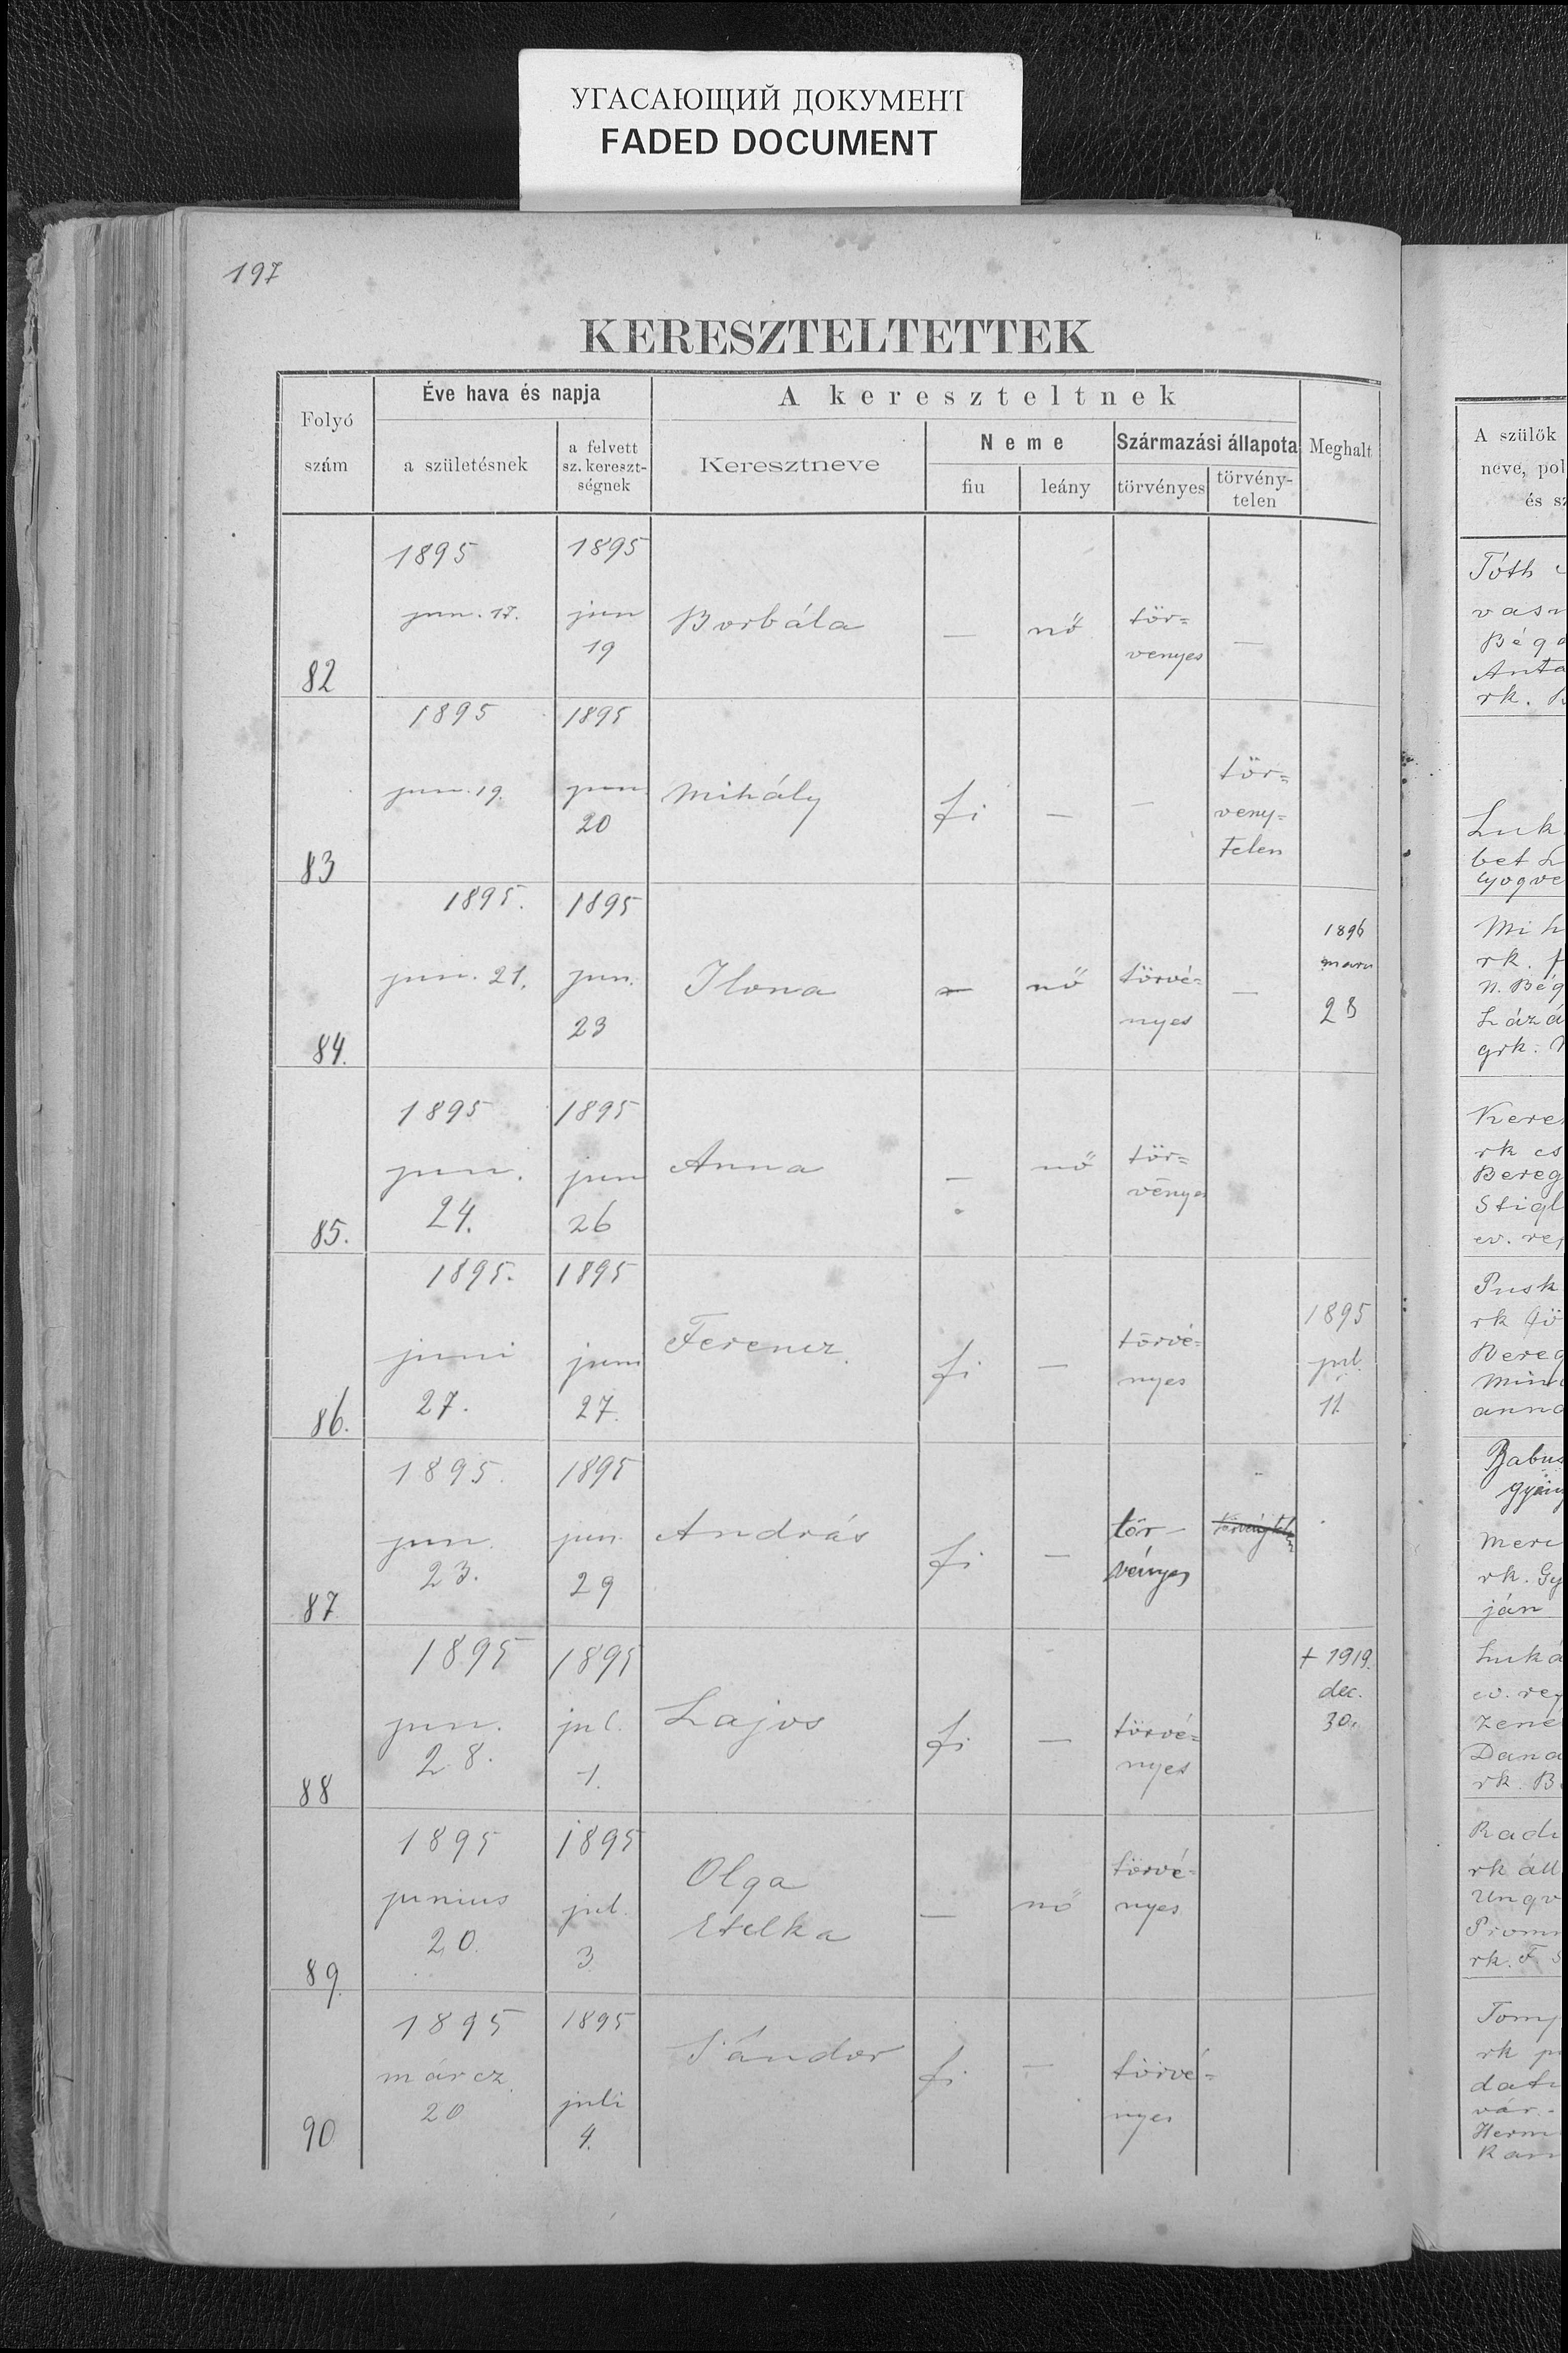 УГАСАЮЩИЙ ДОКУМЕНТ
FADED DOCUMENT
197
KERESZTELTETTEK
Folyó szám
Éve hava és napja
a születésnek
a felvett sz. kereszt-ségnek
A kereszteltnek
Keresztneve
Neme
fiu
leány
Származási állapota
törvényes
törvény-telen
Meghalt
82
1895 jun. 17.
1895 jun 19
Borbála
—
nő
tör=
venyes
—
83
1895 jun. 19.
1895 jun 20
Mihály
fi
—
—
tör=
veny=
telen
84.
1895. jun. 21.
1895 jun. 23
Ilona
—
nő
törvé=
nyes
—
1896
28
85.
1895 jun. 24.
1895 jun 26
Anna
—
nő
tör=
vényes
86.
1895. juni 27.
1895 juni 27.
Ferencz
fi
—
törvé=
nyes
1895
jul.
11.
87
1895. jun. 23.
1895 jun. 29
András
fi
—
tör-
vényes
törvénytelen
88
1895 jun. 28.
1895 jul. 1.
Lajos
fi
—
törvé=
nyes
+ 1919.
dec.
30.
89.
1895 junius 20.
1895 jul. 3
Olga
Etelka
—
nő
törvé=
nyes
90
1895 márcz. 20
1895 juli 4.
Sándor
fi
—
törvé=
nyes
A szülők
neve, pol
és sz
Tóth
vas
Bég
Anta
rk.
Luk
bet
Mih
rk.
N. Bég
Lázá
grk.
Kere
rk cs
Bereg
Stigl
ev. ref
Pusk
rk
Bereg
anna
Babus
rk. Gy
ján
Luká
ev. ref
zene
Dana
rk. B
Radi
rk áll
Ungv
rk. F
Tomp
rk
dat
vár.
Herm